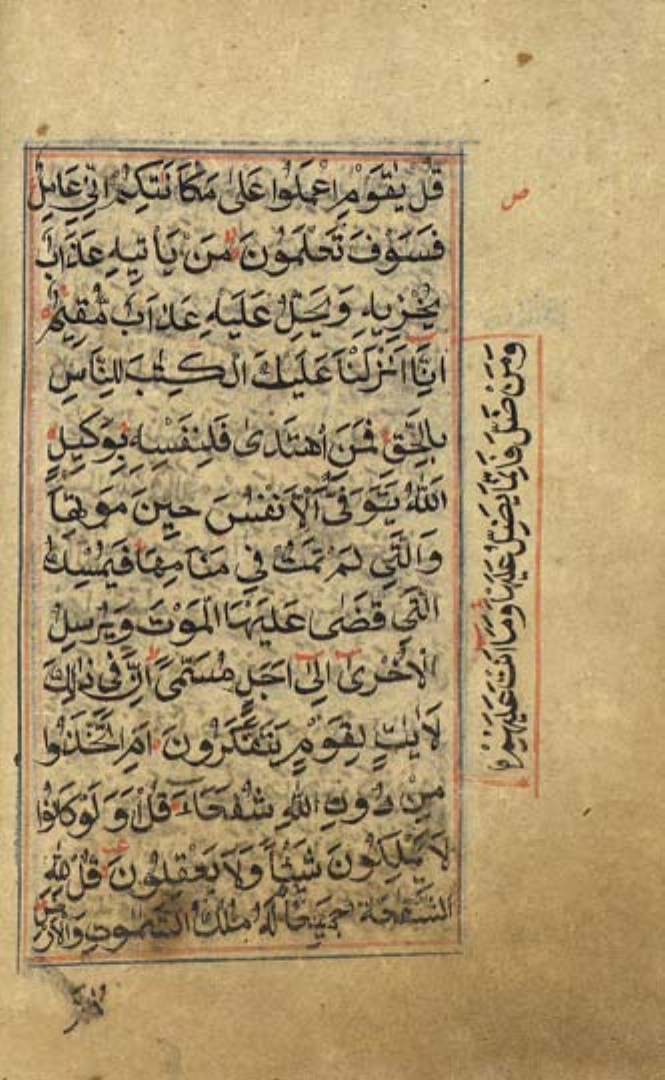 قُلْ يٰقَوْمِ اعْمَلُوا عَلٰى مَكَانَتِكُمْ اِنِّي عَامِلٌ
فَسَوْفَ تَعْلَمُونَ مَنْ يَاْتِيهِ عَذَابٌ
يُخْزِيهِ وَيَحِلُّ عَلَيْهِ عَذَابٌ مُقِيمٌ
اِنَّا اَنْزَلْنَا عَلَيْكَ الْكِتٰبَ لِلنَّاسِ
بِالْحَقِّ فَمَنِ اهْتَدٰى فَلِنَفْسِهِ بِوَكِيلٍ
اَللّٰهُ يَتَوَفَّى الْاَنْفُسَ حِينَ مَوْتِهَا
وَالَّتِي لَمْ تَمُتْ فِي مَنَامِهَا فَيُمْسِكُ
الَّتِي قَضٰى عَلَيْهَا الْمَوْتَ وَيُرْسِلُ
الْاُخْرٰى اِلٰى اَجَلٍ مُسَمًّى اِنَّ فِي ذٰلِكَ
لَاٰيٰتٍ لِقَوْمٍ يَتَفَكَّرُونَ اَمِ اتَّخَذُوا
مِنْ دُونِ اللّٰهِ شُفَعَاءَ قُلْ اَوَلَوْ كَانُوا
لَا يَمْلِكُونَ شَيْـًٔا وَلَا يَعْقِلُونَ قُلْ لِلّٰهِ
الشَّفَاعَةُ جَمِيعًا لَهُ مُلْكُ السَّمٰوٰتِ وَالْاَرْضِ
ص
وَمَنْ ضَلَّ فَاِنَّمَا يَضِلُّ عَلَيْهَا وَمَا اَنْتَ عَلَيْهِمْ